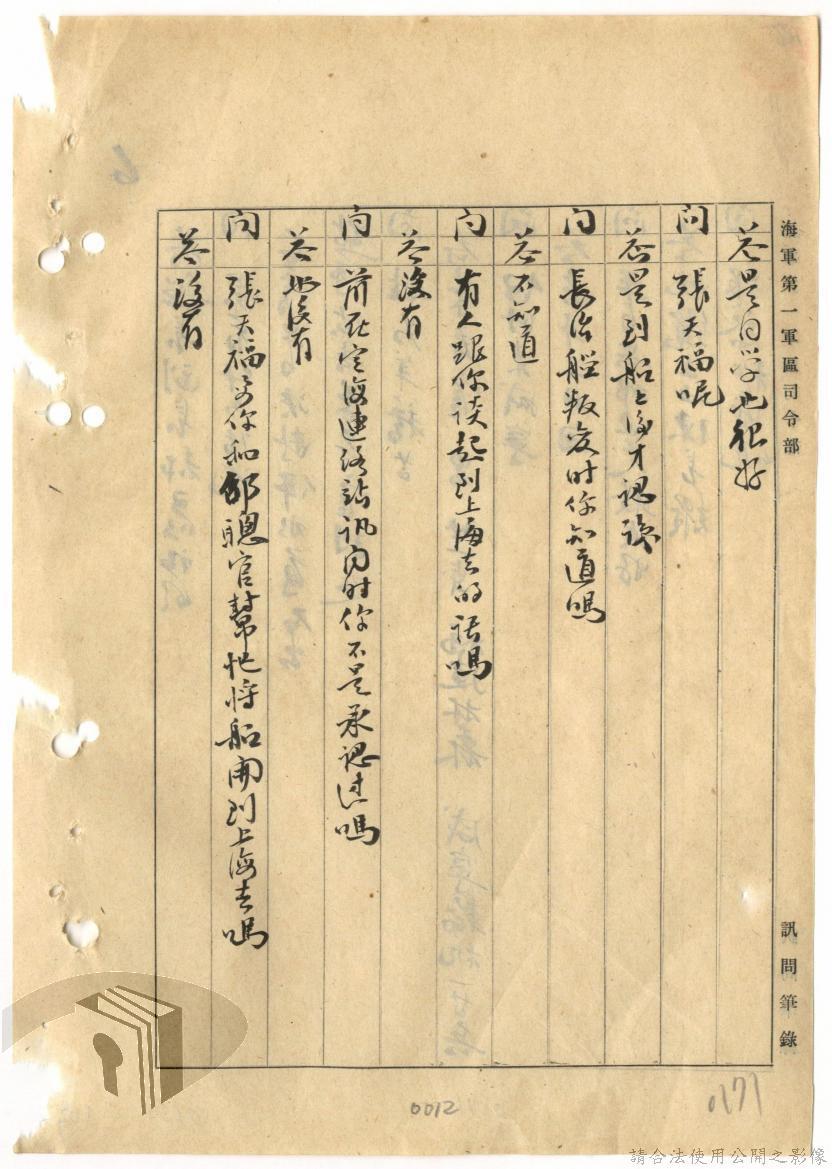 海軍第一軍區司令部 訊問筆錄
答 是同学也很好
問 張天福呢
答 是到船上後才認識
问 長治艦叛变时你知道嗎
答 不知道
问 有人跟你谈起到上海去的话嗎
答 沒有
问 前在定海連络站讯问时你不是承認过嗎
答 也沒有
问 張天福要你和邹聰官幫忙将船開到上海去嗎
答 沒有
0012
請合法使用公開之影像